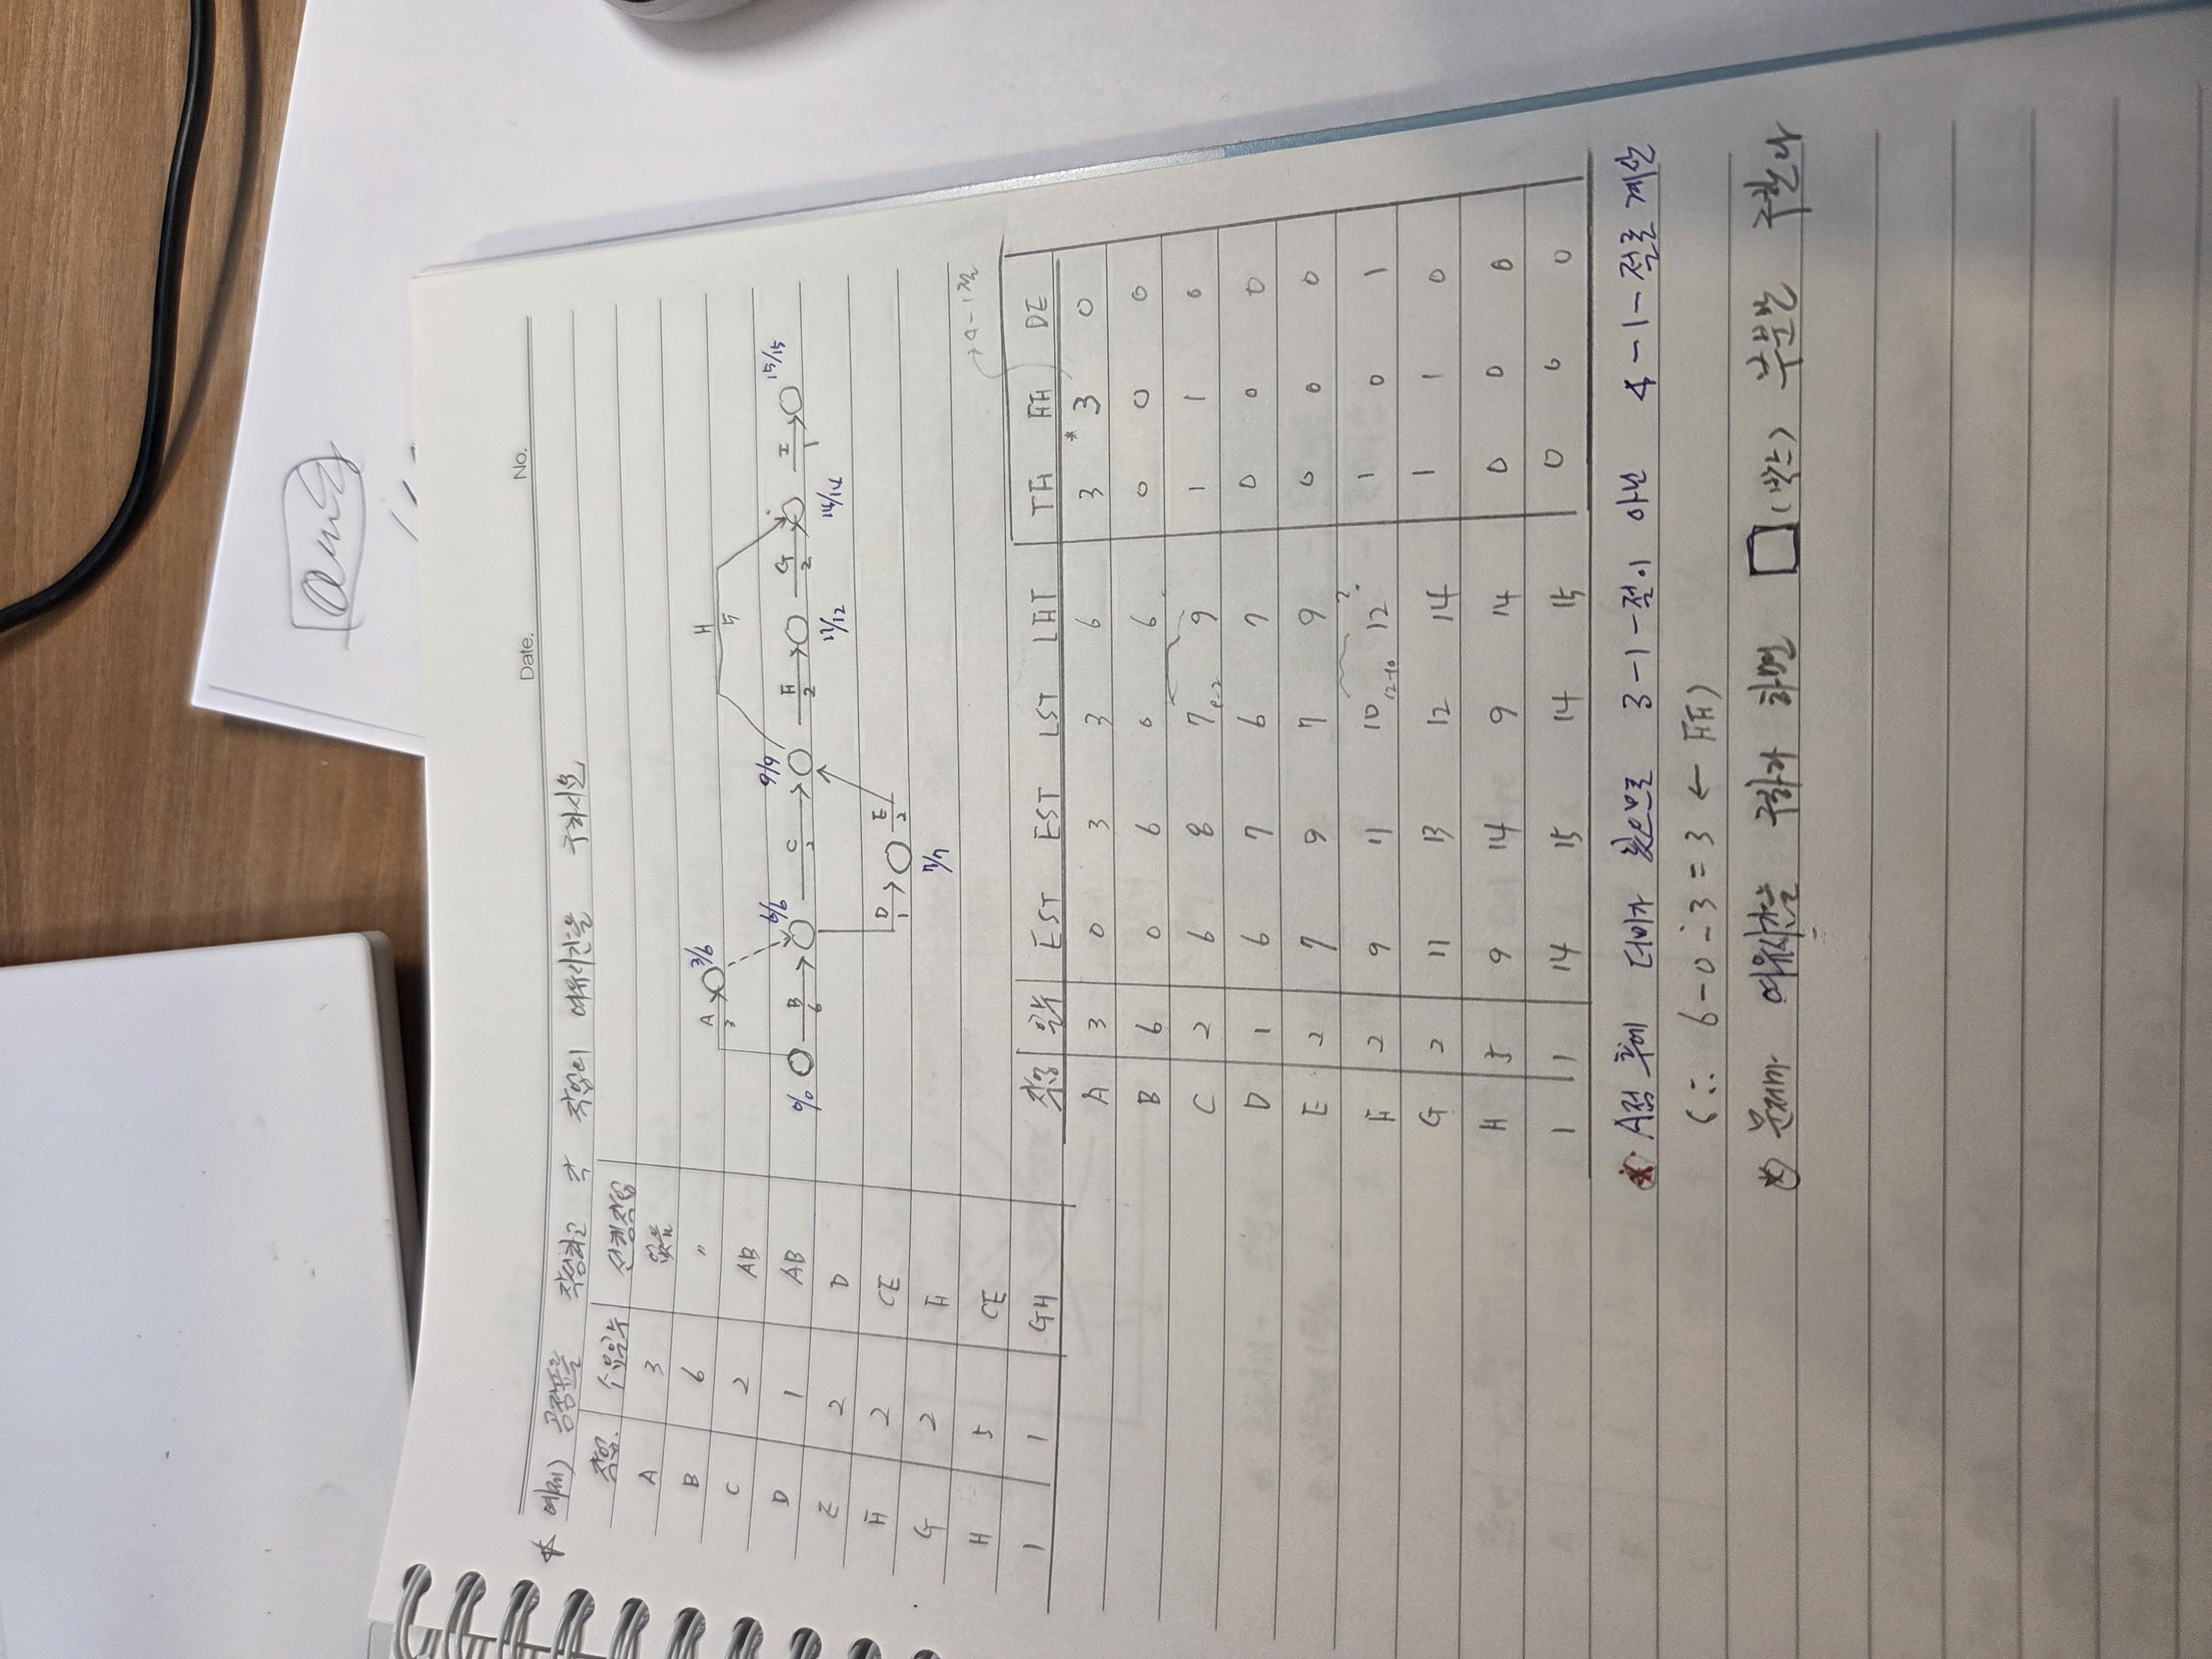 Date.
No.
* 예제) 공정표를 작성하고 각 작업의 여유시간을 구하시오
작업. 소요일수 선행작업
A 3 없음
B 6 "
C 2 AB
D 1 AB
E 2 D
F 2 CE
G 2 F
H 5 CE
I 1 GH
A
3
3/6
0/0
B
6
6/6
C
2
9/9
D
1
7/7
E
2
H
5
F
2
11/12
G
2
14/14
I
1
15/15
작명 일수 EST EST LST LAT TF FF DF
A 3 0 3 3 6 3 *3 0
B 6 0 6 0 6 0 0 0
C 2 6 8 7 9 1 1 0
9-2
D 1 6 7 6 7 0 0 0
E 2 7 9 7 9 0 0 0
F 2 9 11 10 12 1 0 1
12-10
G 2 11 13 12 14 1 1 0
H 5 9 14 9 14 0 0 0
I 1 14 15 14 15 0 0 0
* A점 후에 더미가 있으므로 3-1-절이 아닌 4-1-절로 계산
(∴ 6-0-3=3 ← FF)
* 문제가 여유시간을 구하라 하면 □(박스) 부분만 구한다